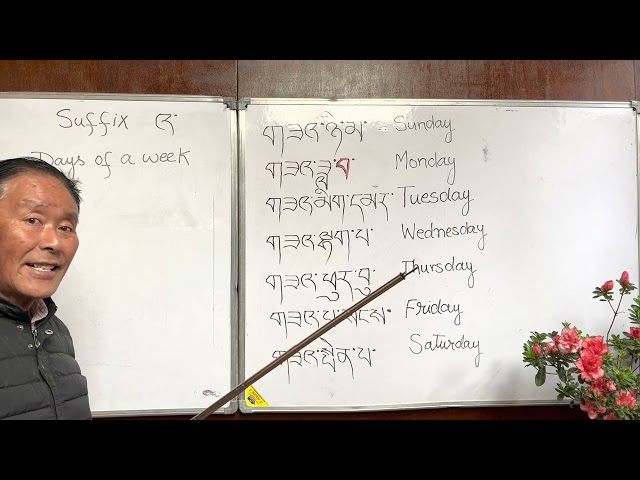 Suffix འ་
Days of a week
གཟའ་ཉི་མ་ Sunday
གཟའ་ཟླ་བ་ Monday
གཟའ་མིག་དམར་ Tuesday
གཟའ་ལྷག་པ་ Wednesday
གཟའ་ཕུར་བུ་ Thursday
གཟའ་པ་སངས་ Friday
གཟའ་སྤེན་པ་ Saturday